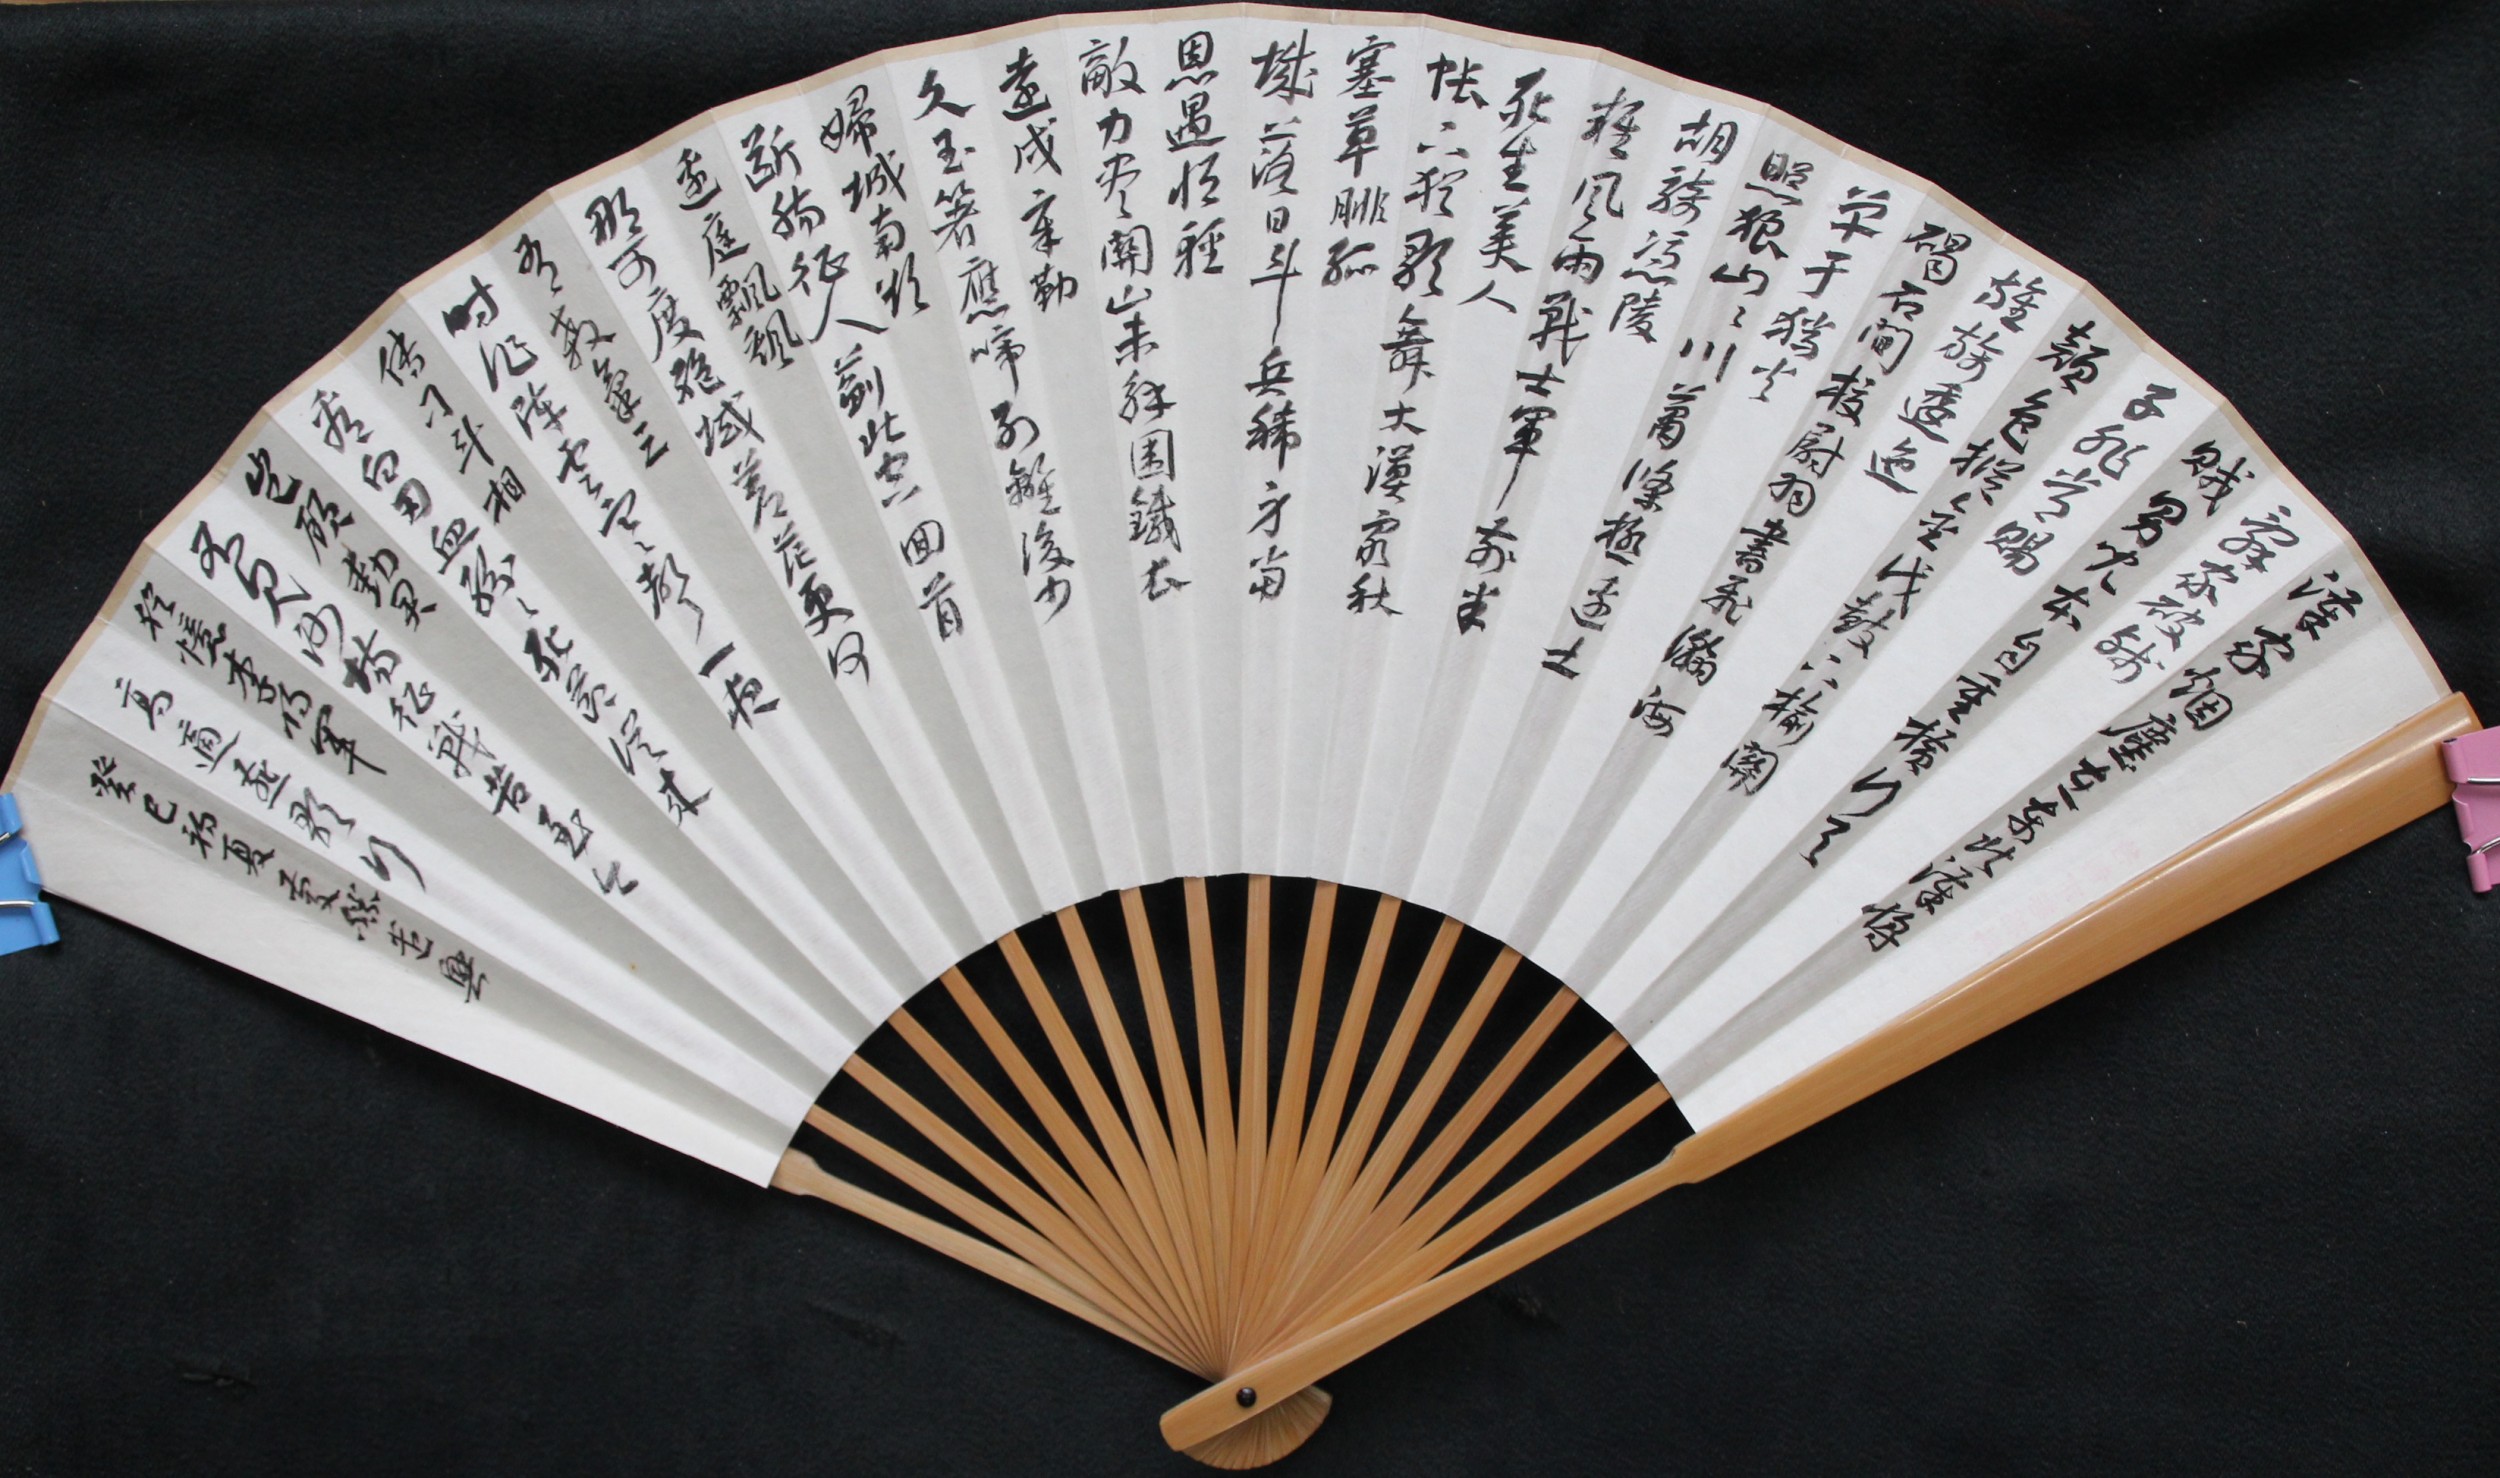 漢家烟塵在東北漢將
辭家破殘
賊男兒本自重橫行天
子非常賜
顏色摐金伐鼓下榆關
旌旆逶迤
碣石間校尉羽書飛瀚海
單于獵火
照狼山山川蕭條極邊土
胡騎憑陵
雜風雨戰士軍前半
死生美人
帳下猶歌舞大漠窮秋
塞草腓孤
城落日斗兵稀身當
恩遇恒輕
敵力尽關山未解圍鐵衣
遠戍辛勤
久玉箸應啼別離後少
婦城南欲
斷腸征人薊北空囬首
邊庭飄颻
那可度絕域蒼茫更何
有殺氣三
時作陣雲寒聲一夜
傳刁斗相
看白刃血紛紛死節從來
豈顧勳
君不見沙場征戰苦至今
猶憶李將軍
高適燕歌行
癸巳初夏